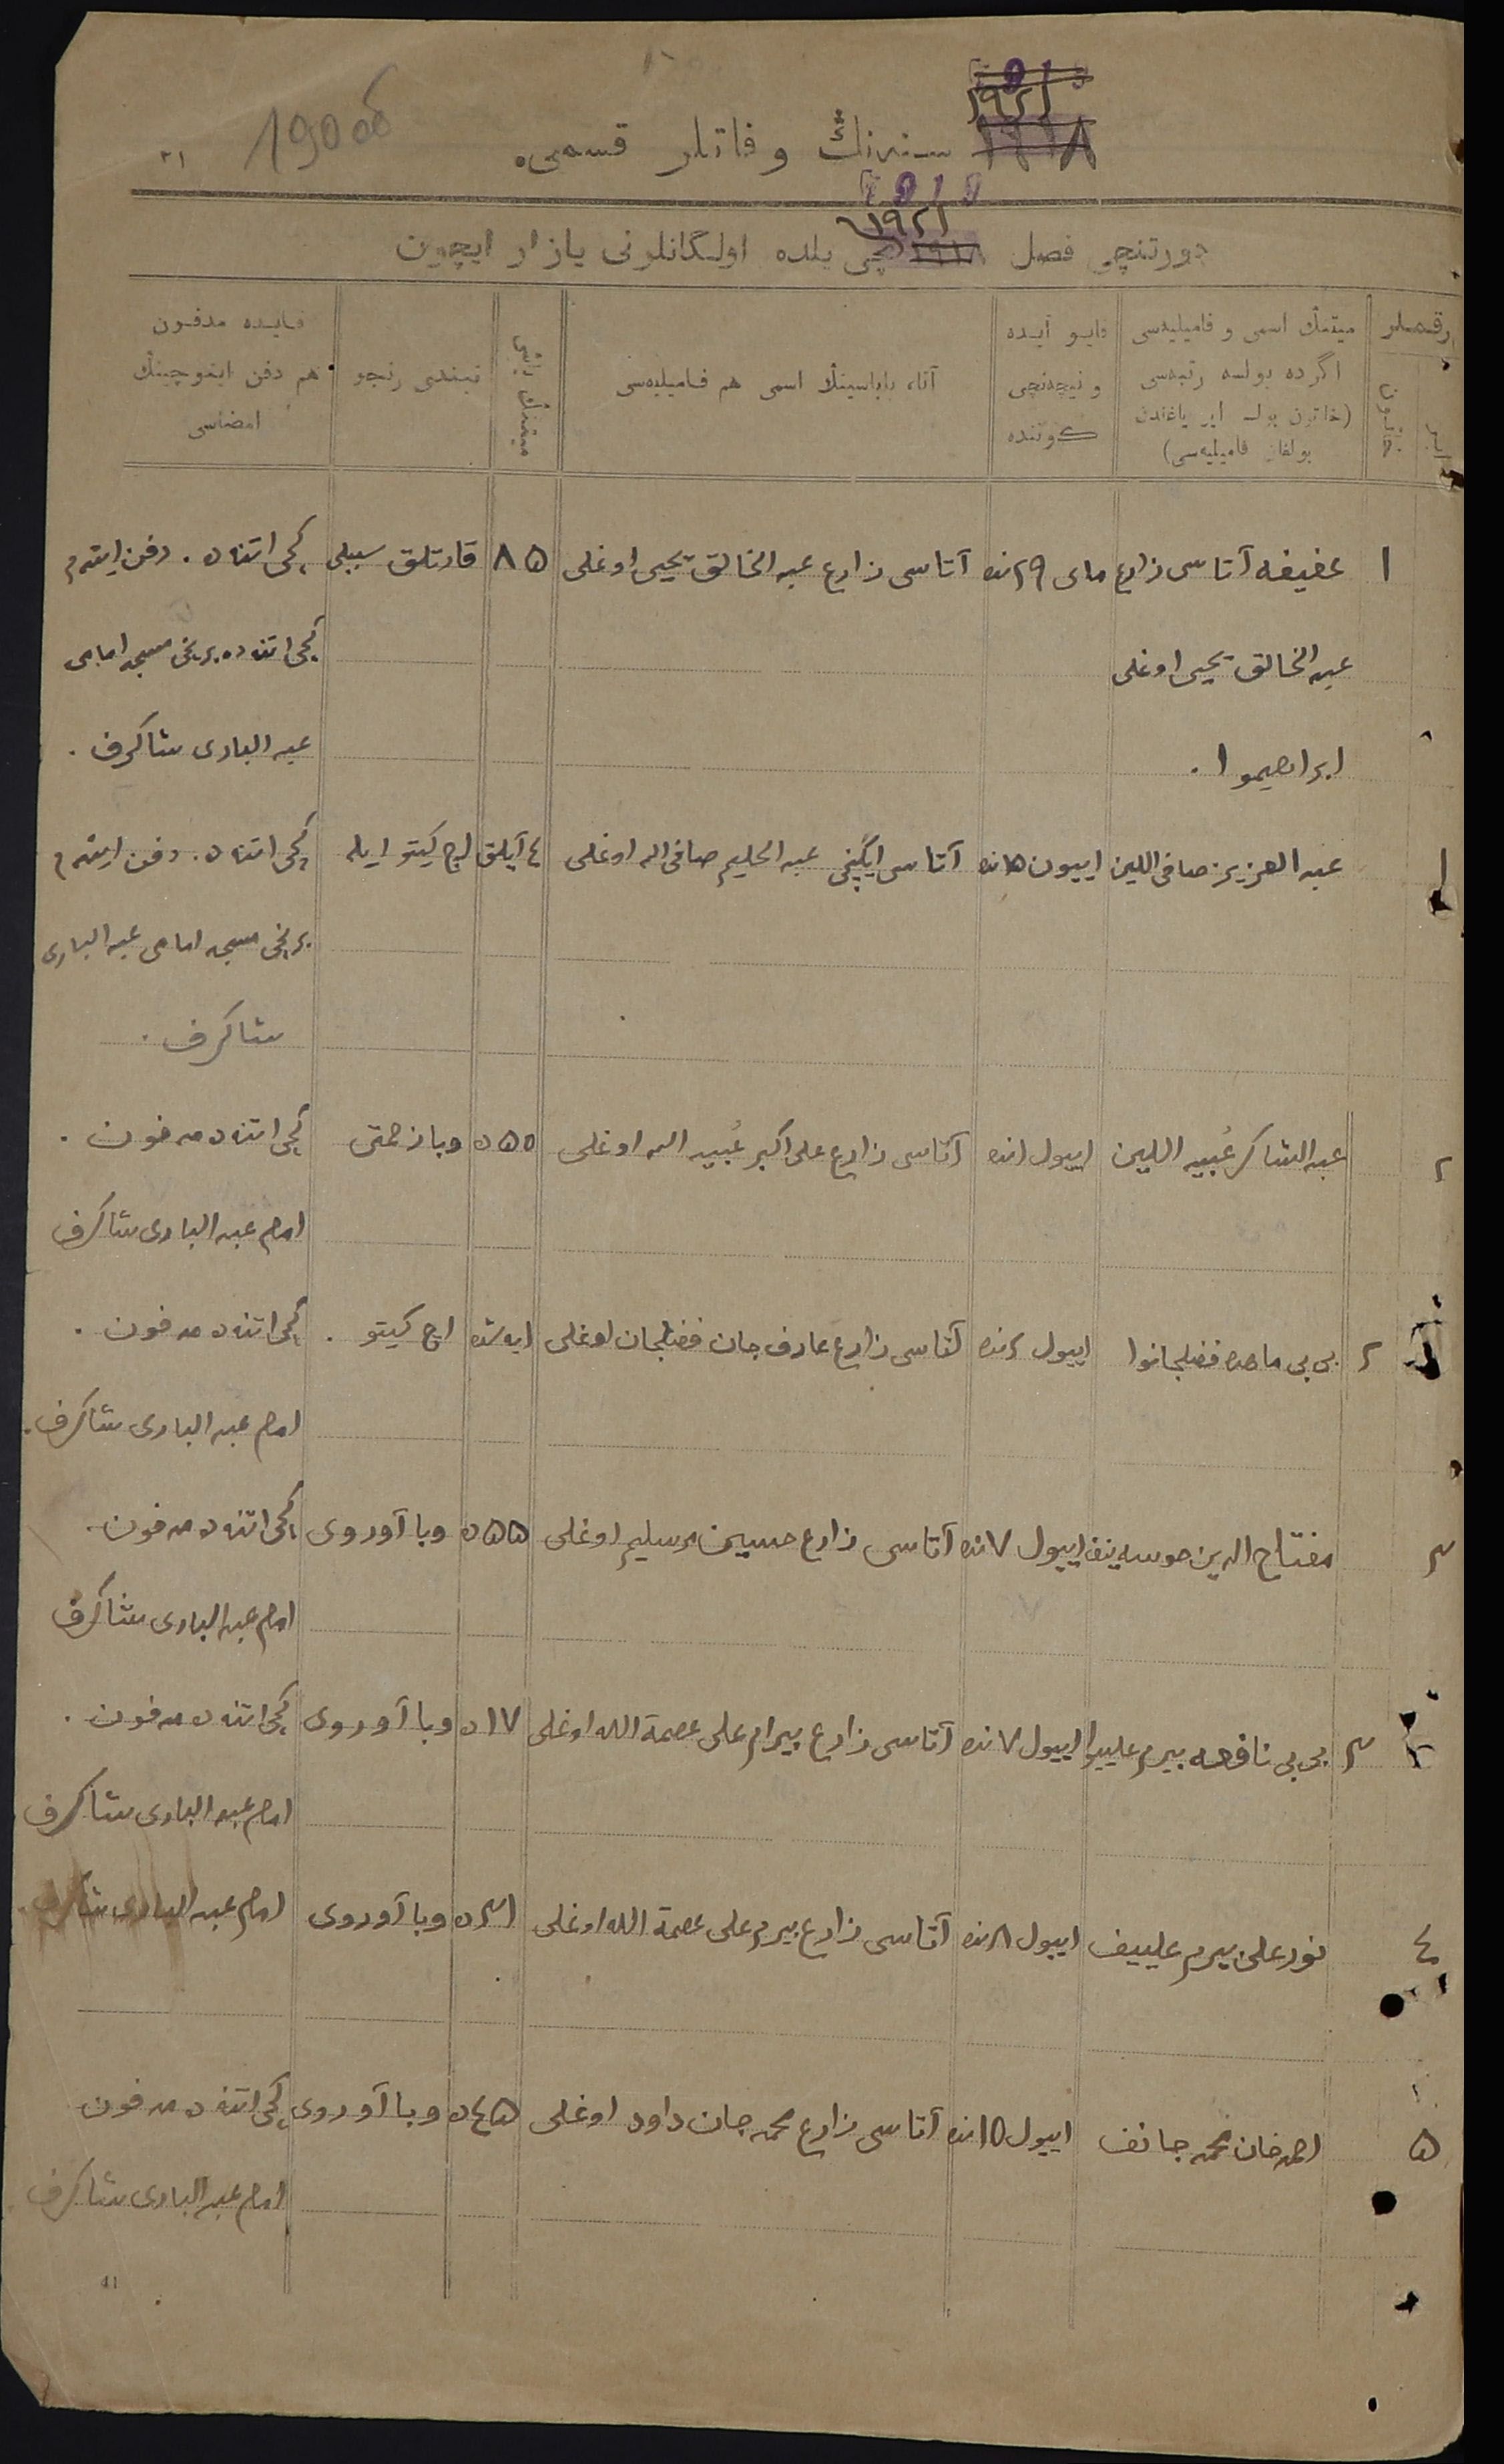 190 об
٢١
١٩٢١ سنه‌نڭ وفاتلر قسمی.
دورتنچی فصل ١٩٢١ نچی یلده اولگانلرنی یازار ایچون
رقملر
میتنڭ اسمی و فامیلیه‌سی اگرده بولسه رتبه‌سی (خاتون بولسه ایر یاغندن بولغان فامیلیه‌سی)
قایو آیده و نیچه‌نچی کوننده
آتا، باباسینڭ اسمی هم فامیلیه‌سی
میتنڭ یاشی
نیندی رنجو
قایده مدفون هم دفن ایتوچینڭ امضاسی
١ عفیفه آتاسی زارع مای ٢٩نده آتاسی زارع عبد الخالق یحیی اوغلی ٨٥ قارتلق سببلی کچی اتنه ده. دفن ایتدم
عبد الخالق یحیی اوغلی کچی اتنه ده برنچی مسجد امامی
ابراهیموا. عبد الباری شاکرف.
١ عبد العزیز صافی اللین اییون ١٥نده آتاسی ایگنچی عبد الحلیم صافی الله اوغلی ٤ آیلق اچ کیتو ایله کچی اتنه ده. دفن ایتدم
برنچی مسجد امامی عبد الباری
شاکرف.
٢ عبد الشاکر عُبید اللین اییول ١نده آتاسی زارع علی اکبر عُبید الله اوغلی ٥٥ ده وبا زحمتی کچی اتنه ده مدفون.
امام عبد الباری شاکرف
٢ بی بی ماهده فضلجانوا اییول ٢نده آتاسی زارع عارف جان فضلجان اوغلی ایه‌شده اچ کیتو. کچی اتنه ده مدفون.
امام عبد الباری شاکرف.
٣ مفتاح الدین حوسه ینف اییول ٧نده آتاسی زارع حسین مرسلیم اوغلی ٥٥ ده وبا آوروی کچی اتنه ده مدفون.
امام عبد الباری شاکرف
٣ بی بی نافعه بیرم علییوا اییول ٧نده آتاسی زارع بیرام علی عصمة الله اوغلی ١٧ ده وبا آوروی کچی اتنه ده مدفون.
امام عبد الباری شاکرف
٤ نور علی بیرم علییف اییول ٨نده آتاسی زارع بیرم علی عصمة الله اوغلی ٣١ ده وبا آوروی امام عبد الباری شاکرف.
٥ احمد خان محمد جانف اییول ١٥نده آتاسی زارع محمد جان داود اوغلی ٤٥ ده وبا آوروی کچی اتنه ده مدفون
امام عبد الباری شاکرف